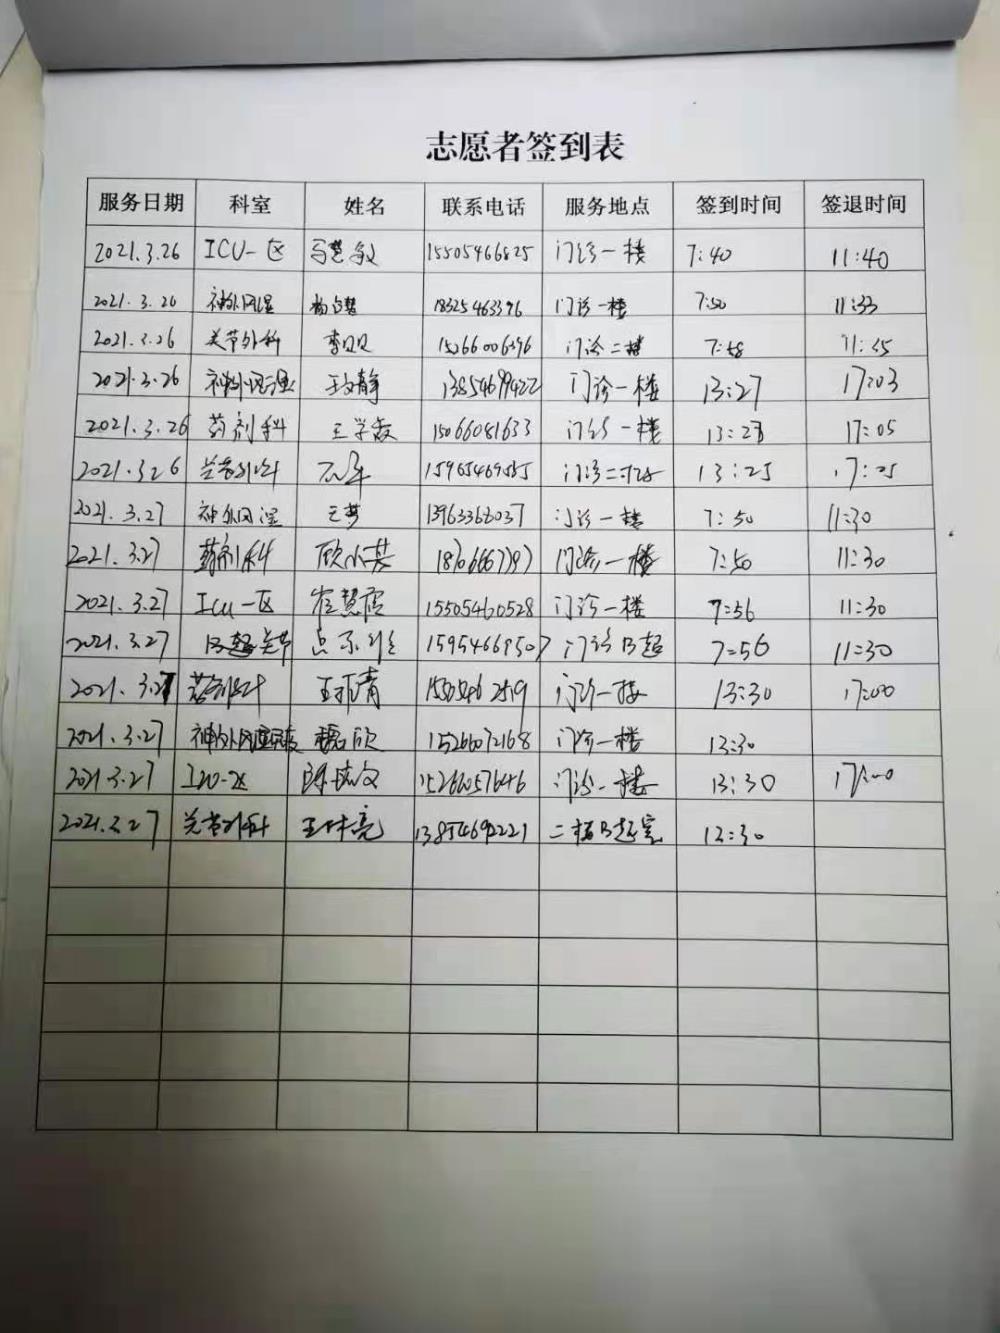 志愿者签到表
服务日期 科室 姓名 联系电话 服务地点 签到时间 签退时间
2021.3.26 ICU一区 马慧敏 15505466825 门诊一楼 7:40 11:40
2021.3.26 神外风湿 18325463396 门诊一楼 7:50 11:33
2021.3.26 关节外科 李贝贝 15266006396 门诊二楼 7:58 11:35
2021.3.26 神外风湿 王文静 13854699422 门诊一楼 13:27 17:03
2021.3.26 药剂科 王学敏 15066081633 门诊一楼 13:27 17:05
2021.3.26 关节外科 门诊二楼 13:25 17:25
2021.3.27 神外风湿 王梦 13963368037 门诊一楼 7:50 11:30
2021.3.27 药剂科 门诊一楼 7:50 11:30
2021.3.27 ICU一区 崔慧霞 15505460528 门诊一楼 7:56 11:30
2021.3.27 B超关节 15954669507 门诊B超 7:56 11:30
2021.3.27 药剂科 门诊一楼 13:30 17:00
2021.3.27 15266072168 门诊一楼 13:30
2021.3.27 ICU一区 15266057646 门诊一楼 13:30 17:00
2021.3.27 关节外科 13854692221 二楼B超室 13:30